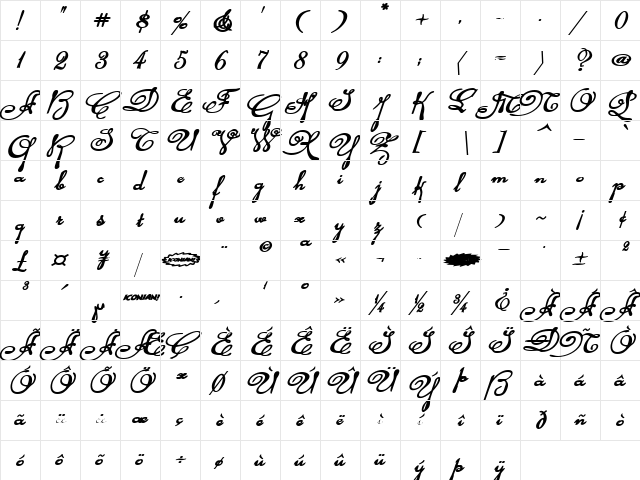 ! " # $ % & ' ( ) * + , - . / 0
1 2 3 4 5 6 7 8 9 : ; = ? @
A B C D E F G H I J K L M N O P
Q R S T U V W X Y Z [ | ] ^ _
a b c d e f g h i j k l m n o p
q r s t u v w x y z ( / ) ~ ¡ ¢
£ ¤ ¥ | ICONIAN! ¨ © a « ¬ - ¯ ° ± 2
3 ´ ICONIAN! · ¸ 1 º » ¼ ½ ¾ ¿ À Á Â
Ã Ä Å Æ Ç È É Ê Ë Ì Í Î Ï Ð Ñ Ò
Ó Ô Õ Ö × Ø Ù Ú Û Ü Ý Þ B à á â
ã ä å æ ç è é ê ë ì í î ï ð ñ ò
ó ô õ ö ÷ ø ù ú û ü ý þ ÿ